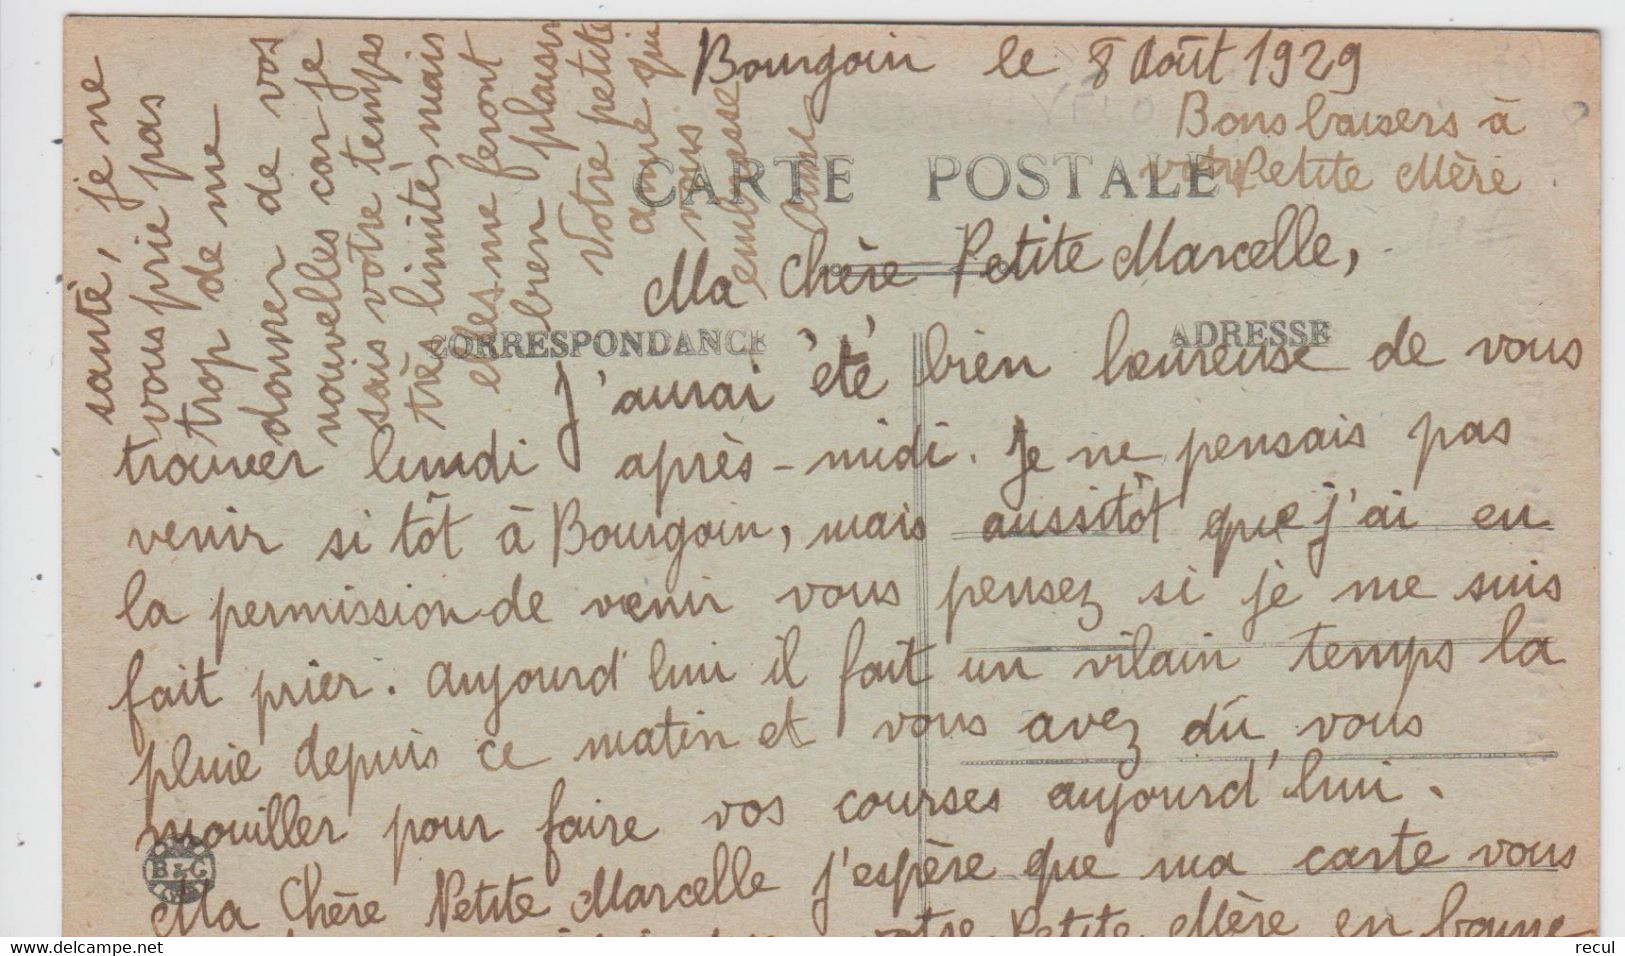 Bourgoin le 8 Août 1929
Bons baisers à
votre Petite Mère
CARTE POSTALE
Ma Chère Petite Marcelle,
CORRESPONDANCE
ADRESSE
J'aurai été bien heureuse de vous
trouver lundi après-midi. Je ne pensais pas
venir si tôt à Bourgoin, mais aussitôt que j'ai eu
la permission de venir vous pensez si je me suis
fait prier. Aujourd'hui il fait un vilain temps la
pluie depuis ce matin et vous avez dû vous
mouiller pour faire vos courses aujourd'hui.
Ma Chère Petite Marcelle j'espère que ma carte vous
votre Petite Mère en bonne
santé, je ne
vous prie pas
trop de me
donner de vos
nouvelles car je
sais votre temps
très limité, mais
elles me feront
bien plaisir
Votre petite
amie qui
vous
embrasse
B & G
delcampe.net
recul